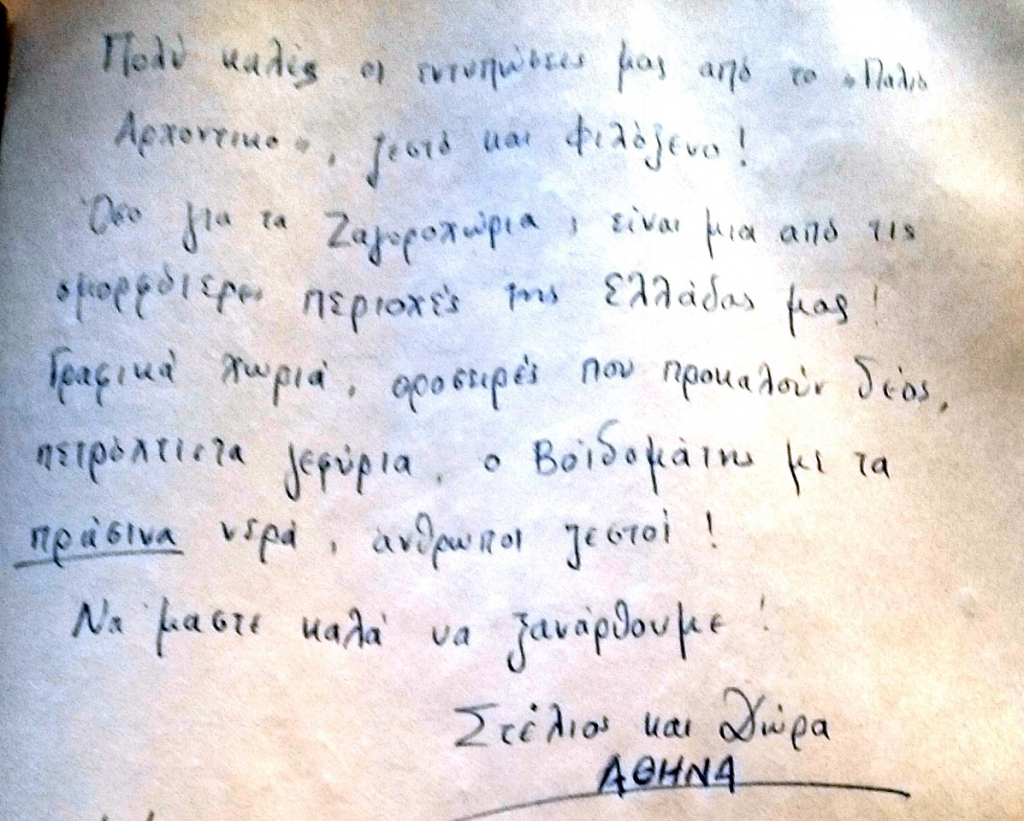 Πολύ καλές οι εντυπώσεις μας από το «Παλιό
Αρχοντικό», ζεστό και φιλόξενο!
Όσο για τα Ζαγοροχώρια, είναι μια από τις
ομορφότερες περιοχές της Ελλάδας μας!
Γραφικά χωριά, οροσειρές που προκαλούν δέος,
πετρόχτιστα γεφύρια, ο Βοϊδομάτης με τα
πράσινα νερά, άνθρωποι ζεστοί!
Να 'μαστε καλά να ξανάρθουμε!
Στέλιος και Δώρα
ΑΘΗΝΑ